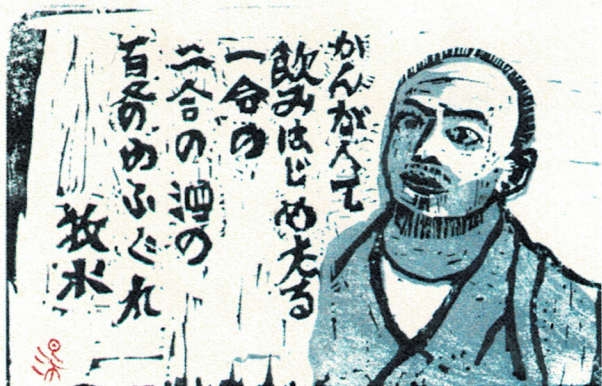 かんがへて
飲みはじめたる
一合の
二合の酒の
夏のゆふぐれ
牧水